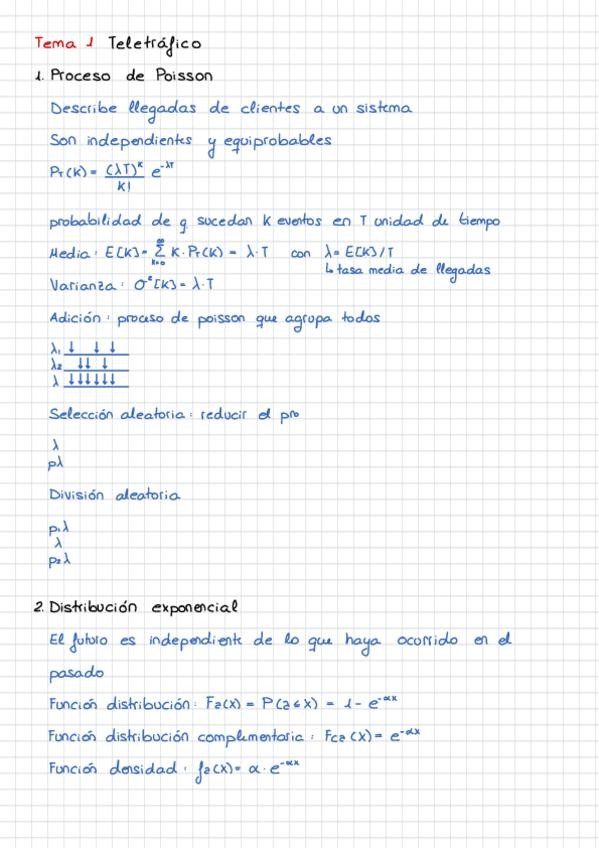 Tema 1 Teletráfico
1. Proceso de Poisson
Describe llegadas de clientes a un sistema
Son independientes y equiprobables
P_T(K) = (λT)^K / K! e^-λT
probabilidad de q sucedan K eventos en T unidad de tiempo
Media: E[K] = Σ_{K=0}^{∞} K·P_T(K) = λ·T con λ = E[K]/T
↳ tasa media de llegadas
Varianza: σ²[K] = λ·T
Adición: proceso de poisson que agrupa todos
λ₁ ↓ ↓ ↓
λ₂ ↓↓ ↓
λ ↓↓↓↓↓↓
Selección aleatoria: reducir el pro
λ
pλ
División aleatoria
p₁λ
λ
p₂λ
2. Distribución exponencial
El futuro es independiente de lo que haya ocorrido en el
pasado
Función distribución: Fa(X) = P(a ≤ X) = 1 - e^-αx
Función distribución complementaria: Fca(X) = e^-αx
Función densidad: fa(X) = α·e^-αx